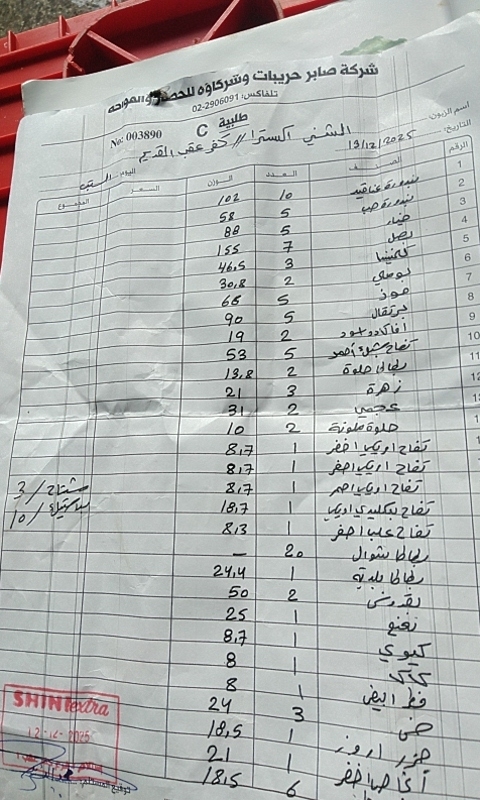 شركة صابر حريبات وشركاؤه للخضار والفواكه
تلفاكس: 02-2906091
طلبية C
No: 003890
اسم الزبون: المشني البسترا // كفر عقب القديم
التاريخ: 13/12/2025
اليوم: السبت
الرقم الصنف العدد الوزن السعر المجموع
1 بندورة عناقيد 10 102
2 بندورة حب 5 58
3 خيار 5 88
4 بصل 7 155
5 كلمنتينا 3 46,5
6 بوملي 2 30,8
7 موز 5 66
8 برتقال 5 90
9 افاكادو اسود 2 19
10 تفاح احمر 5 53
11 بطاطا حلوة 2 13,8
12 زهرة 3 21
عجمي 2 31
حلوة ملونة 2 10
تفاح اخضر 1 8,7
تفاح اصفر 1 8,7
تفاح احمر 1 8,7
تفاح 1 18,7
تفاح اصفر 1 8,3
بطاطا شوال 20 –
بطاطا 1 24,4
بقدونس 2 50
نعنع 1 25
كيوي 1 8,7
كاكا 1 8
فطر ابيض 1 8
خس 3 24
جزر 1 18,5
1 21
اخضر 6 18,5
3 /
10 /
SHINI extra
12-12-2025
توقيع المستلم